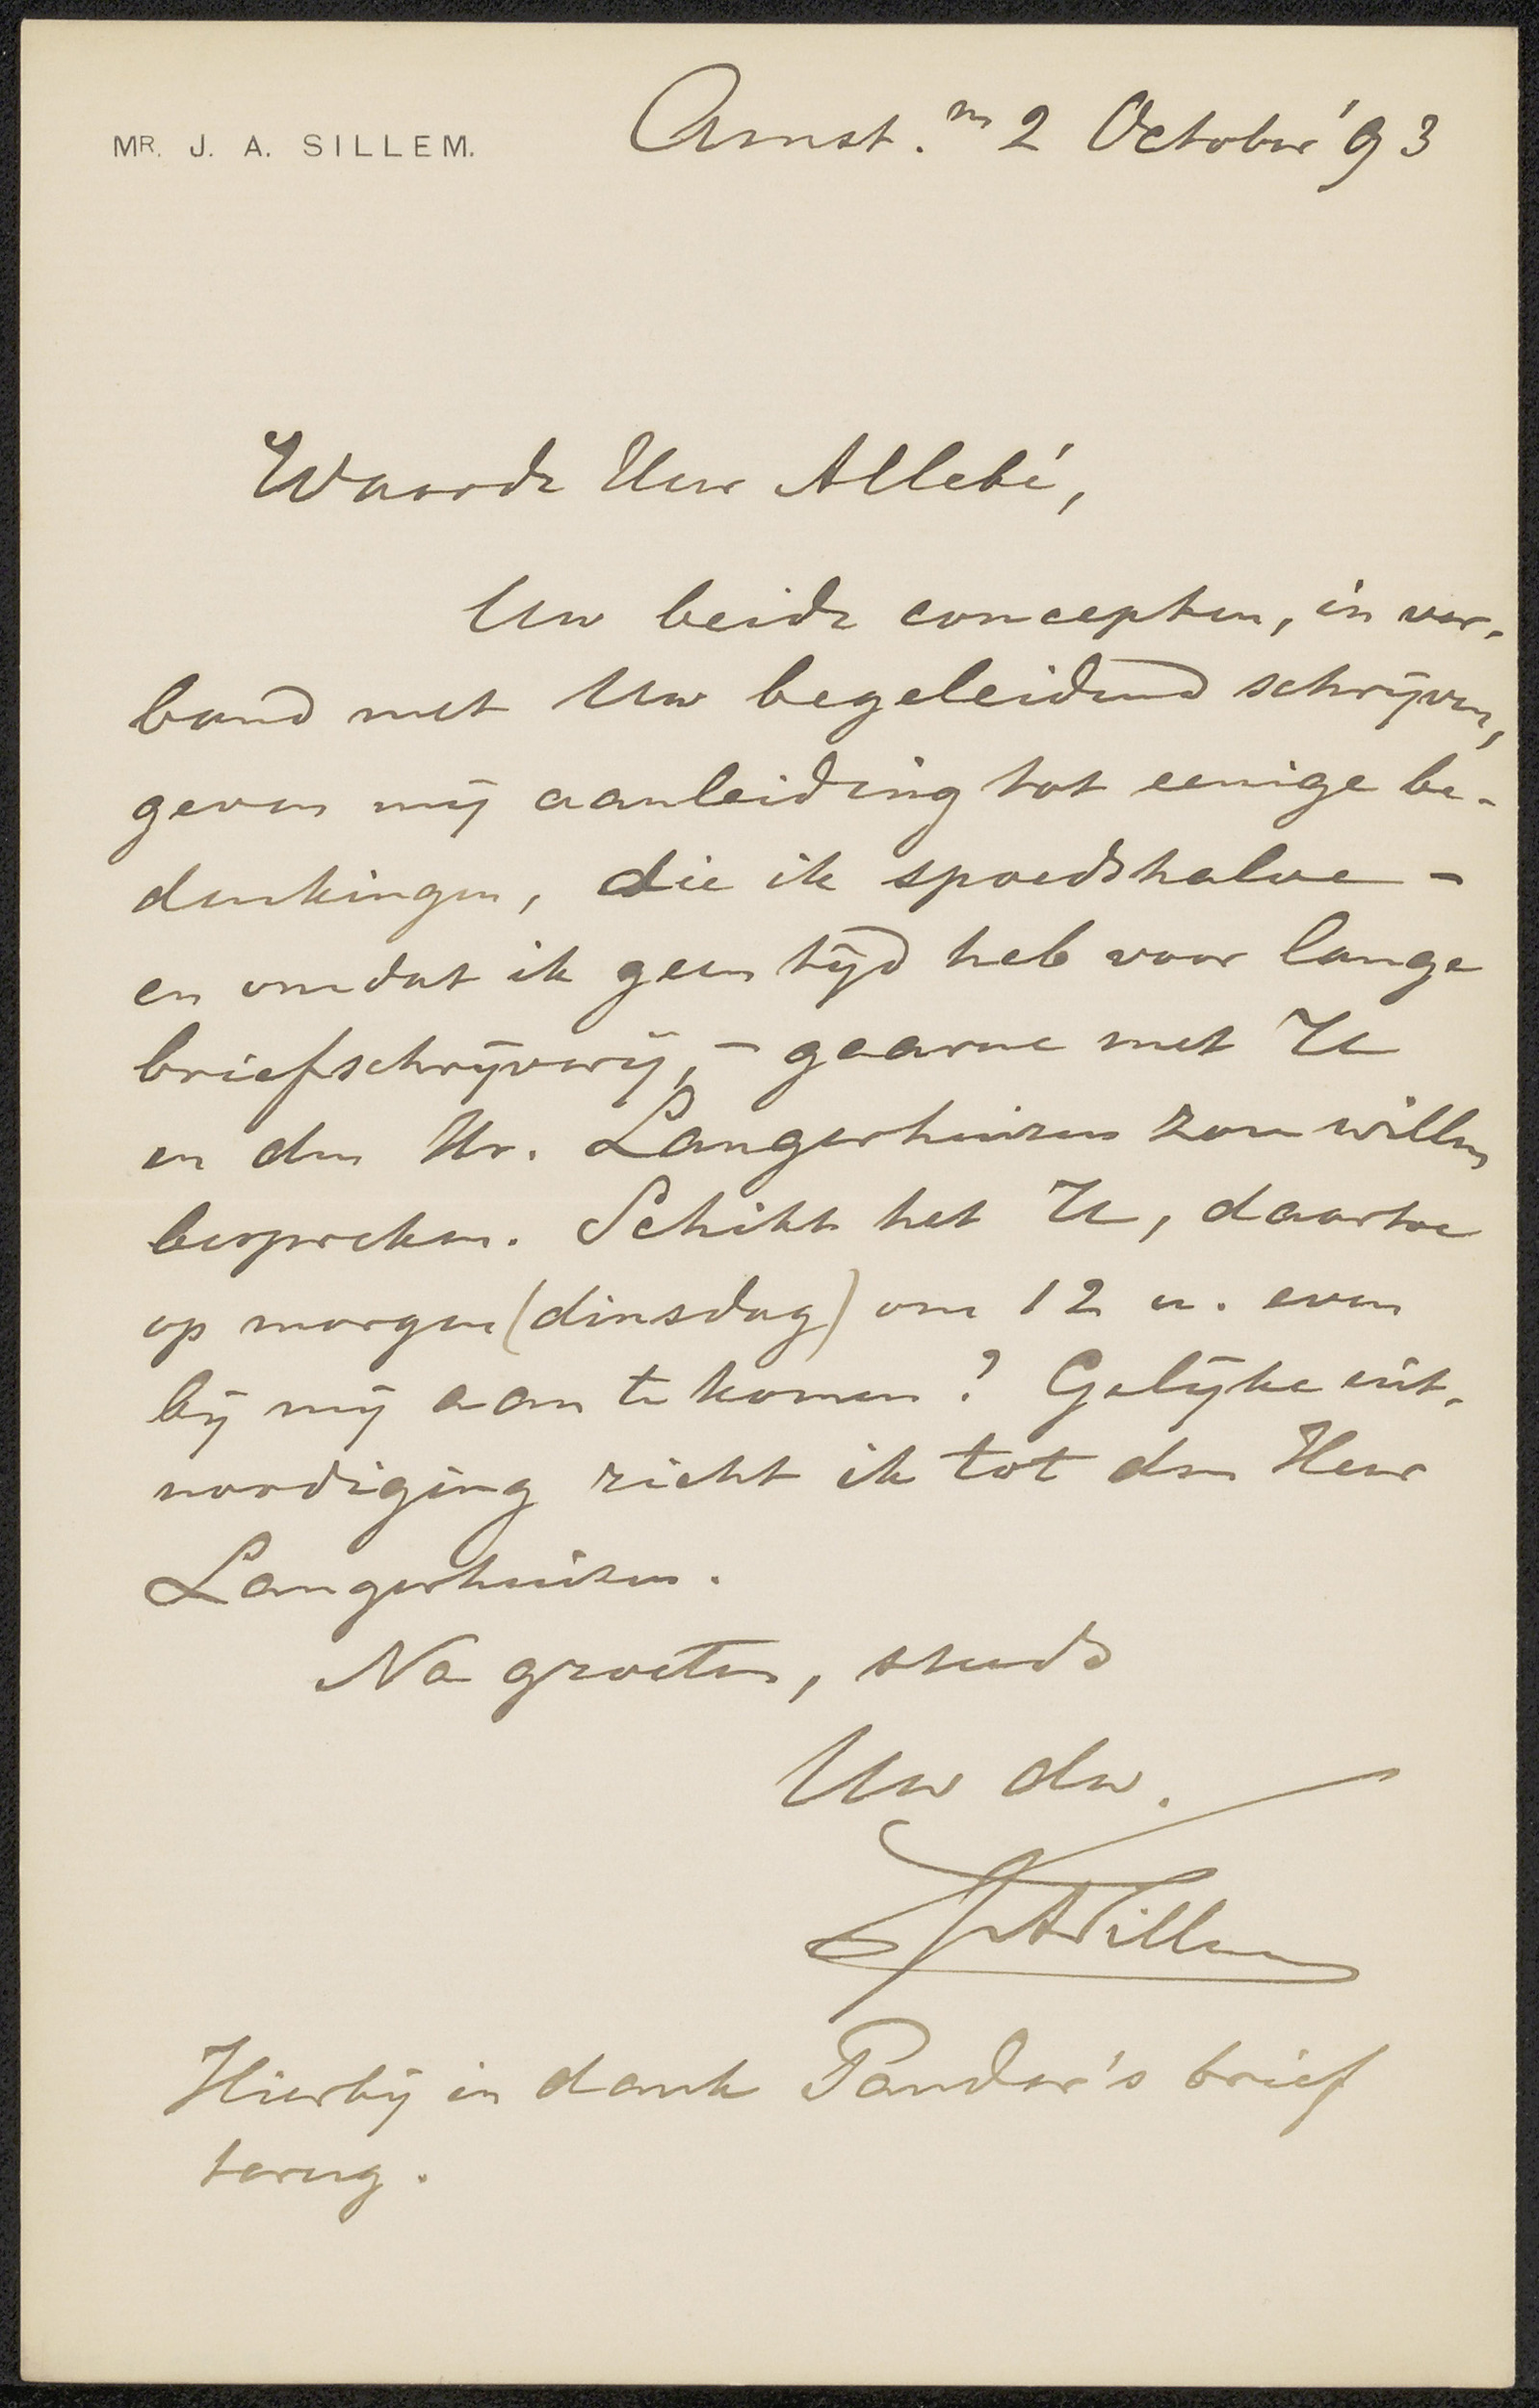 MR. J. A. SILLEM.
Amst.m 2 October '93
Waarde Heer Allebé,
Uw beide concepten, in ver-
band met Uw begeleidend schrijven,
geven mij aanleiding tot eenige be-
denkingen, die ik spoedshalve -
en omdat ik geen tijd heb voor lange
briefschrijverij, - gaarne met U
en den Hr. Langerhuizen zou willen
bespreken. Schikt het U, daartoe
op morgen (dinsdag) om 12 u. even
bij mij aan te komen? Gelijke uit-
noodiging richt ik tot den Heer
Langerhuizen.
Na groeten, steeds
Uw dw.
JASillem
Hierbij in dank Pander's brief
terug.